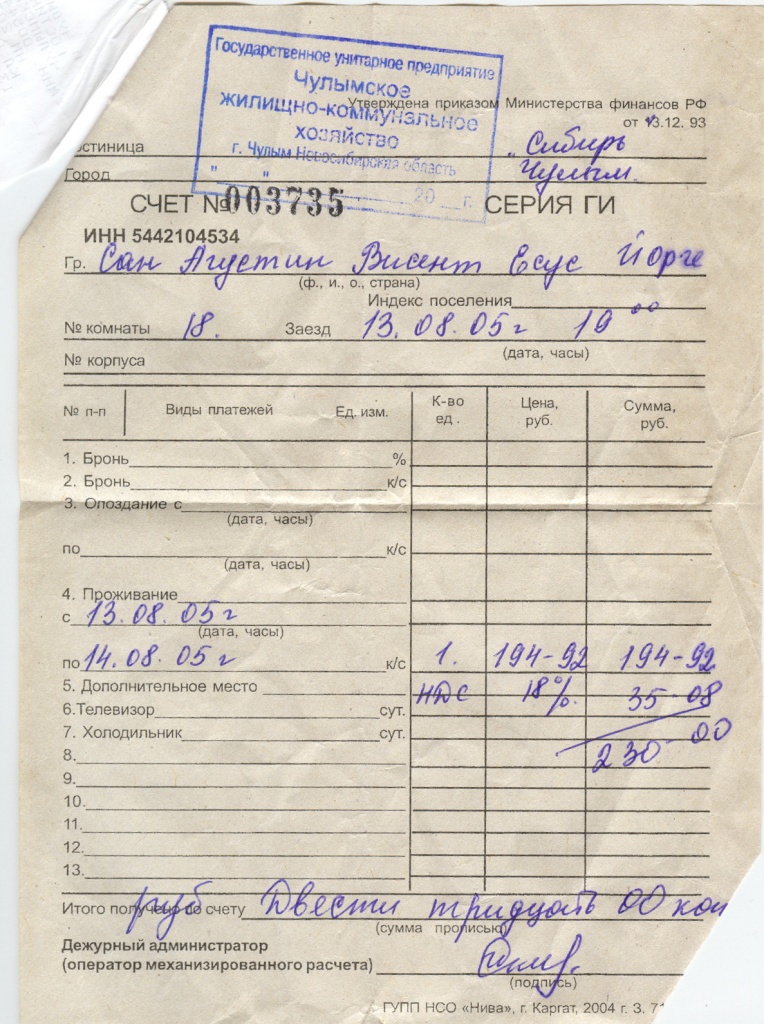 Государственное унитарное предприятие
Чулымское
жилищно-коммунальное
хозяйство
г. Чулым Новосибирская область
" " 20 г.
Утверждена приказом Министерства финансов РФ
от 13.12. 93
остиница „Сибирь
Город Чулым.
СЧЕТ № 003735 СЕРИЯ ГИ
ИНН 5442104534
Гр. Сан Агустин Висент Есус Йорге
(ф., и., о., страна)
Индекс поселения
№ комнаты 18. Заезд 13.08.05г 19 00
№ корпуса (дата, часы)
№ п-п Виды платежей Ед. изм. К-во ед. Цена, руб. Сумма, руб.
1. Бронь %
2. Бронь к/с
3. Опоздание с
(дата, часы)
по к/с
(дата, часы)
4. Проживание
с 13.08.05г
(дата, часы)
по 14.08.05г к/с 1. 194-92 194-92
5. Дополнительное место НДС 18%. 35-08
6.Телевизор сут.
7. Холодильник сут. 230-00
8.
9.
10.
11.
12.
13.
Итого получено по счету руб Двести тридцать 00 коп
(сумма прописью)
Дежурный администратор
(оператор механизированного расчета)
(подпись)
ГУПП НСО «Нива», г. Каргат, 2004 г. З. 71